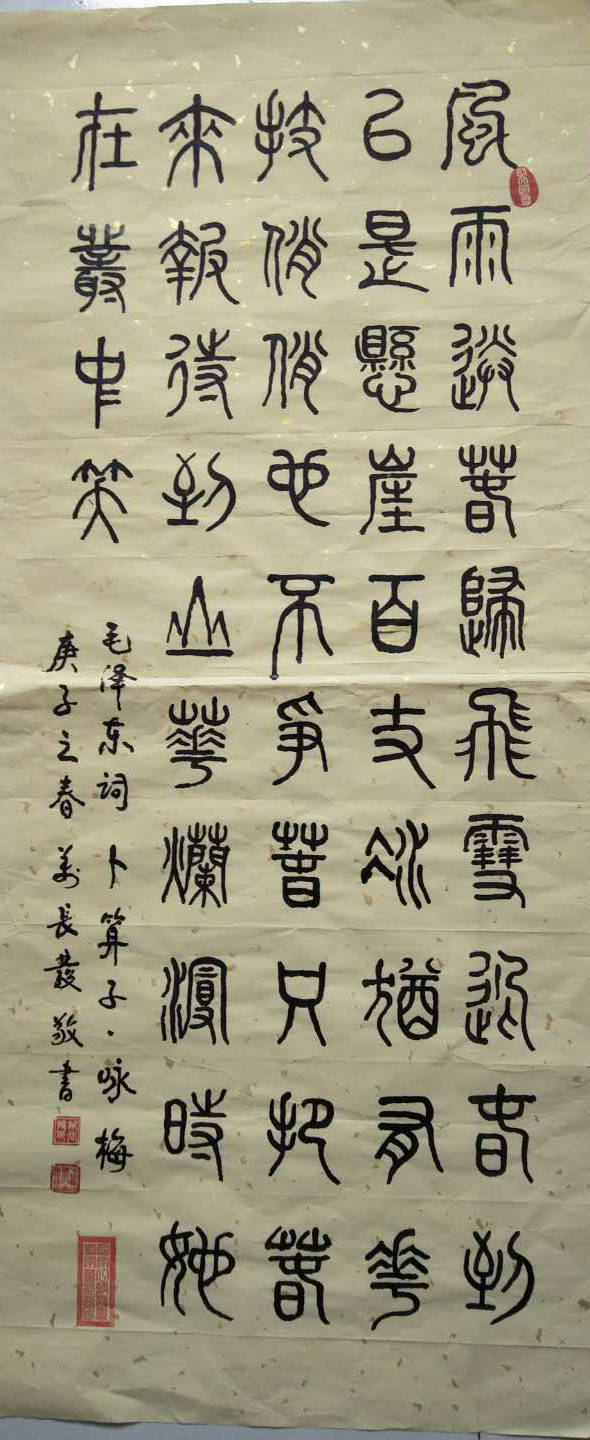 風雨送春歸飛雪迎春到
已是懸崖百丈冰猶有花
技俏俏也不爭春只把春
來報待到山華爛漫時她
在叢中笑
毛泽东词 卜算子·咏梅
庚子之春 萬長發敬書